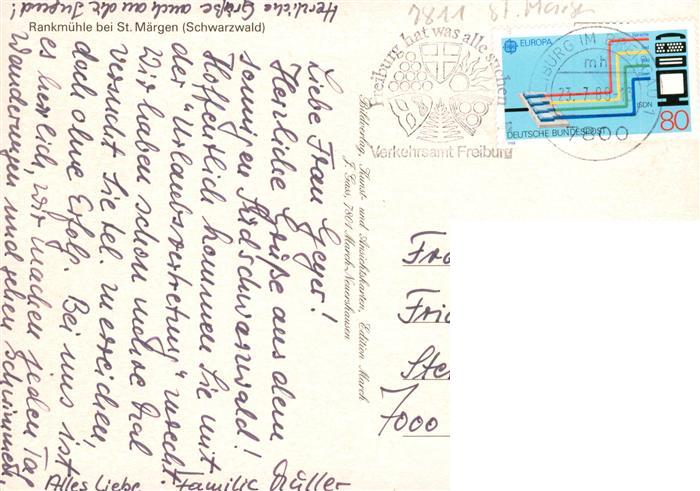 Herzliche Grüße auch an die Jugend!
Rankmühle bei St. Märgen (Schwarzwald)
Liebe Frau Geyer!
Herzliche Grüße aus dem
sonnigen Südschwarzwald!
Hoffentlich kommen Sie mit
der "Urlaubsvertretung" zurecht.
Wir haben schon mehre Mal
versucht Sie tel. zu erreichen,
doch ohne Erfolg. Bei uns ist
es herrlich, wir machen jeden Tag
Wanderungen und gehen schwimmen.
Alles Liebe Familie Müller
Bildverlag, Kunst- und Ansichtskarten, Edition March
J. Gass, 7801 March-Neuershausen
7811 St. Märgen
Freiburg hat was alle suchen
Verkehrsamt Freiburg
FREIBURG IM BREISGAU 1
mh
23.7.88
7800
EUROPA
ISDN
DEUTSCHE BUNDESPOST
80
7000